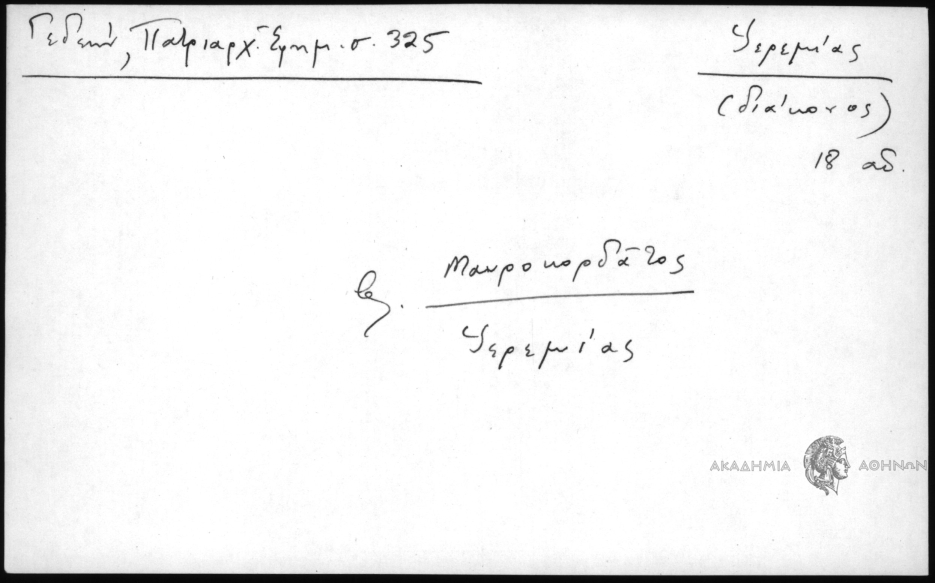 Γεδεών, Πατριαρχ. Ἐφημ. σ. 325
Ἱερεμίας
(διάκονος)
18 αἰ.
βλ. Μαυροκορδᾶτος
Ἱερεμίας
ΑΚΑΔΗΜΙΑ ΑΘΗΝΩΝ